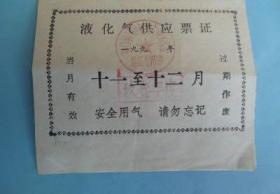 液化气供应票证
一九九 年
当月有效
十一至十二月
过期作废
安全用气 请勿忘记